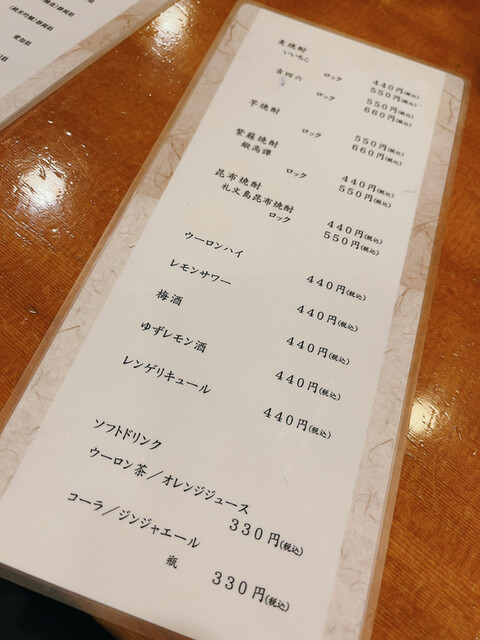 醸造)静岡県
(純米吟醸)静岡県
愛知県
県
麦焼酎
いいちこ 440円(税込)
ロック 550円(税込)
吉四六 550円(税込)
ロック 660円(税込)
芋焼酎 550円(税込)
ロック 660円(税込)
紫蘇焼酎
鍛高譚 440円(税込)
ロック 550円(税込)
昆布焼酎
礼文島昆布焼酎 440円(税込)
ロック 550円(税込)
ウーロンハイ 440円(税込)
レモンサワー 440円(税込)
梅酒 440円(税込)
ゆずレモン酒 440円(税込)
レンゲリキュール 440円(税込)
ソフトドリンク
ウーロン茶/オレンジジュース
330円(税込)
コーラ/ジンジャエール
瓶 330円(税込)